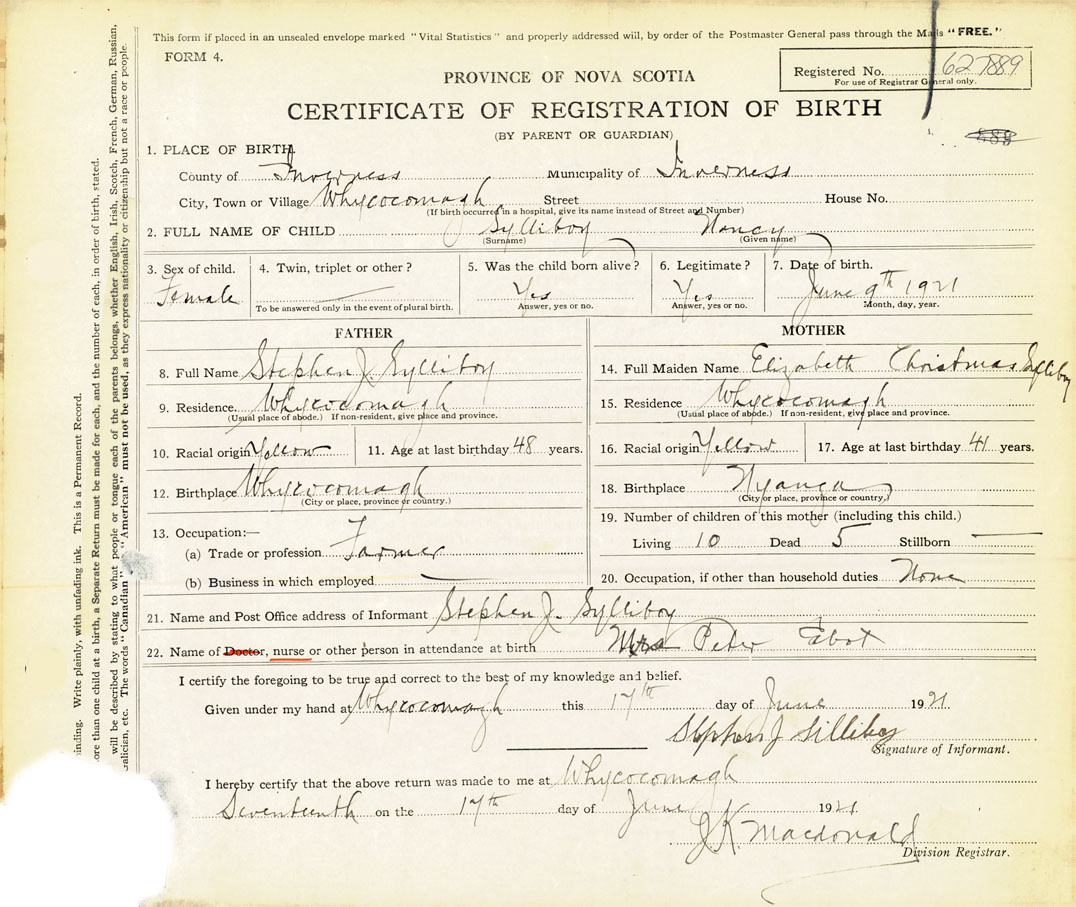 This form if placed in an unsealed envelope marked "Vital Statistics" and properly addressed will, by order of the Postmaster General pass through the Mails "FREE."
FORM 4.
PROVINCE OF NOVA SCOTIA
Registered No. 627889
For use of Registrar General only.
CERTIFICATE OF REGISTRATION OF BIRTH
(BY PARENT OR GUARDIAN)
1. PLACE OF BIRTH.
County of Inverness Municipality of Inverness
City, Town or Village Whycocomagh Street House No.
(If birth occurred in a hospital, give its name instead of Street and Number)
2. FULL NAME OF CHILD Sylliboy Nancy
(Surname) (Given name)
3. Sex of child. 4. Twin, triplet or other? 5. Was the child born alive? 6. Legitimate? 7. Date of birth.
Female Yes Yes June 9th 1921
To be answered only in the event of plural birth. Answer, yes or no. Answer, yes or no. Month, day, year.
FATHER
8. Full Name Stephen J. Sylliboy
9. Residence. Whycocomagh
(Usual place of abode.) If non-resident, give place and province.
10. Racial origin Yellow 11. Age at last birthday 48 years.
12. Birthplace Whycocomagh
(City or place, province or country.)
13. Occupation:—
(a) Trade or profession Farmer
(b) Business in which employed
MOTHER
14. Full Maiden Name Elizabeth Christmas Sylliboy
15. Residence Whycocomagh
(Usual place of abode.) If non-resident, give place and province.
16. Racial origin Yellow 17. Age at last birthday 41 years.
18. Birthplace Nyanca
(City or place, province or country.)
19. Number of children of this mother (including this child.)
Living 10 Dead 5 Stillborn —
20. Occupation, if other than household duties None
21. Name and Post Office address of Informant Stephen J. Sylliboy
22. Name of Doctor, nurse or other person in attendance at birth Mrs Peter
I certify the foregoing to be true and correct to the best of my knowledge and belief.
Given under my hand at Whycocomagh this 17th day of June 1921.
Stephen J Silliboy
Signature of Informant.
I hereby certify that the above return was made to me at Whycocomagh
Seventeenth on the 17th day of June 1921.
J K Macdonald
Division Registrar.
inding. Write plainly, with unfading ink. This is a Permanent Record.
ore than one child at a birth, a Separate Return must be made for each, and the number of each, in order of birth, stated.
will be described by stating to what people or tongue each of the parents belongs, whether English, Irish, Scotch, French, German, Russian,
alician, etc. The words "Canadian" or "American" must not be used, as they express nationality or citizenship but not a race or people.